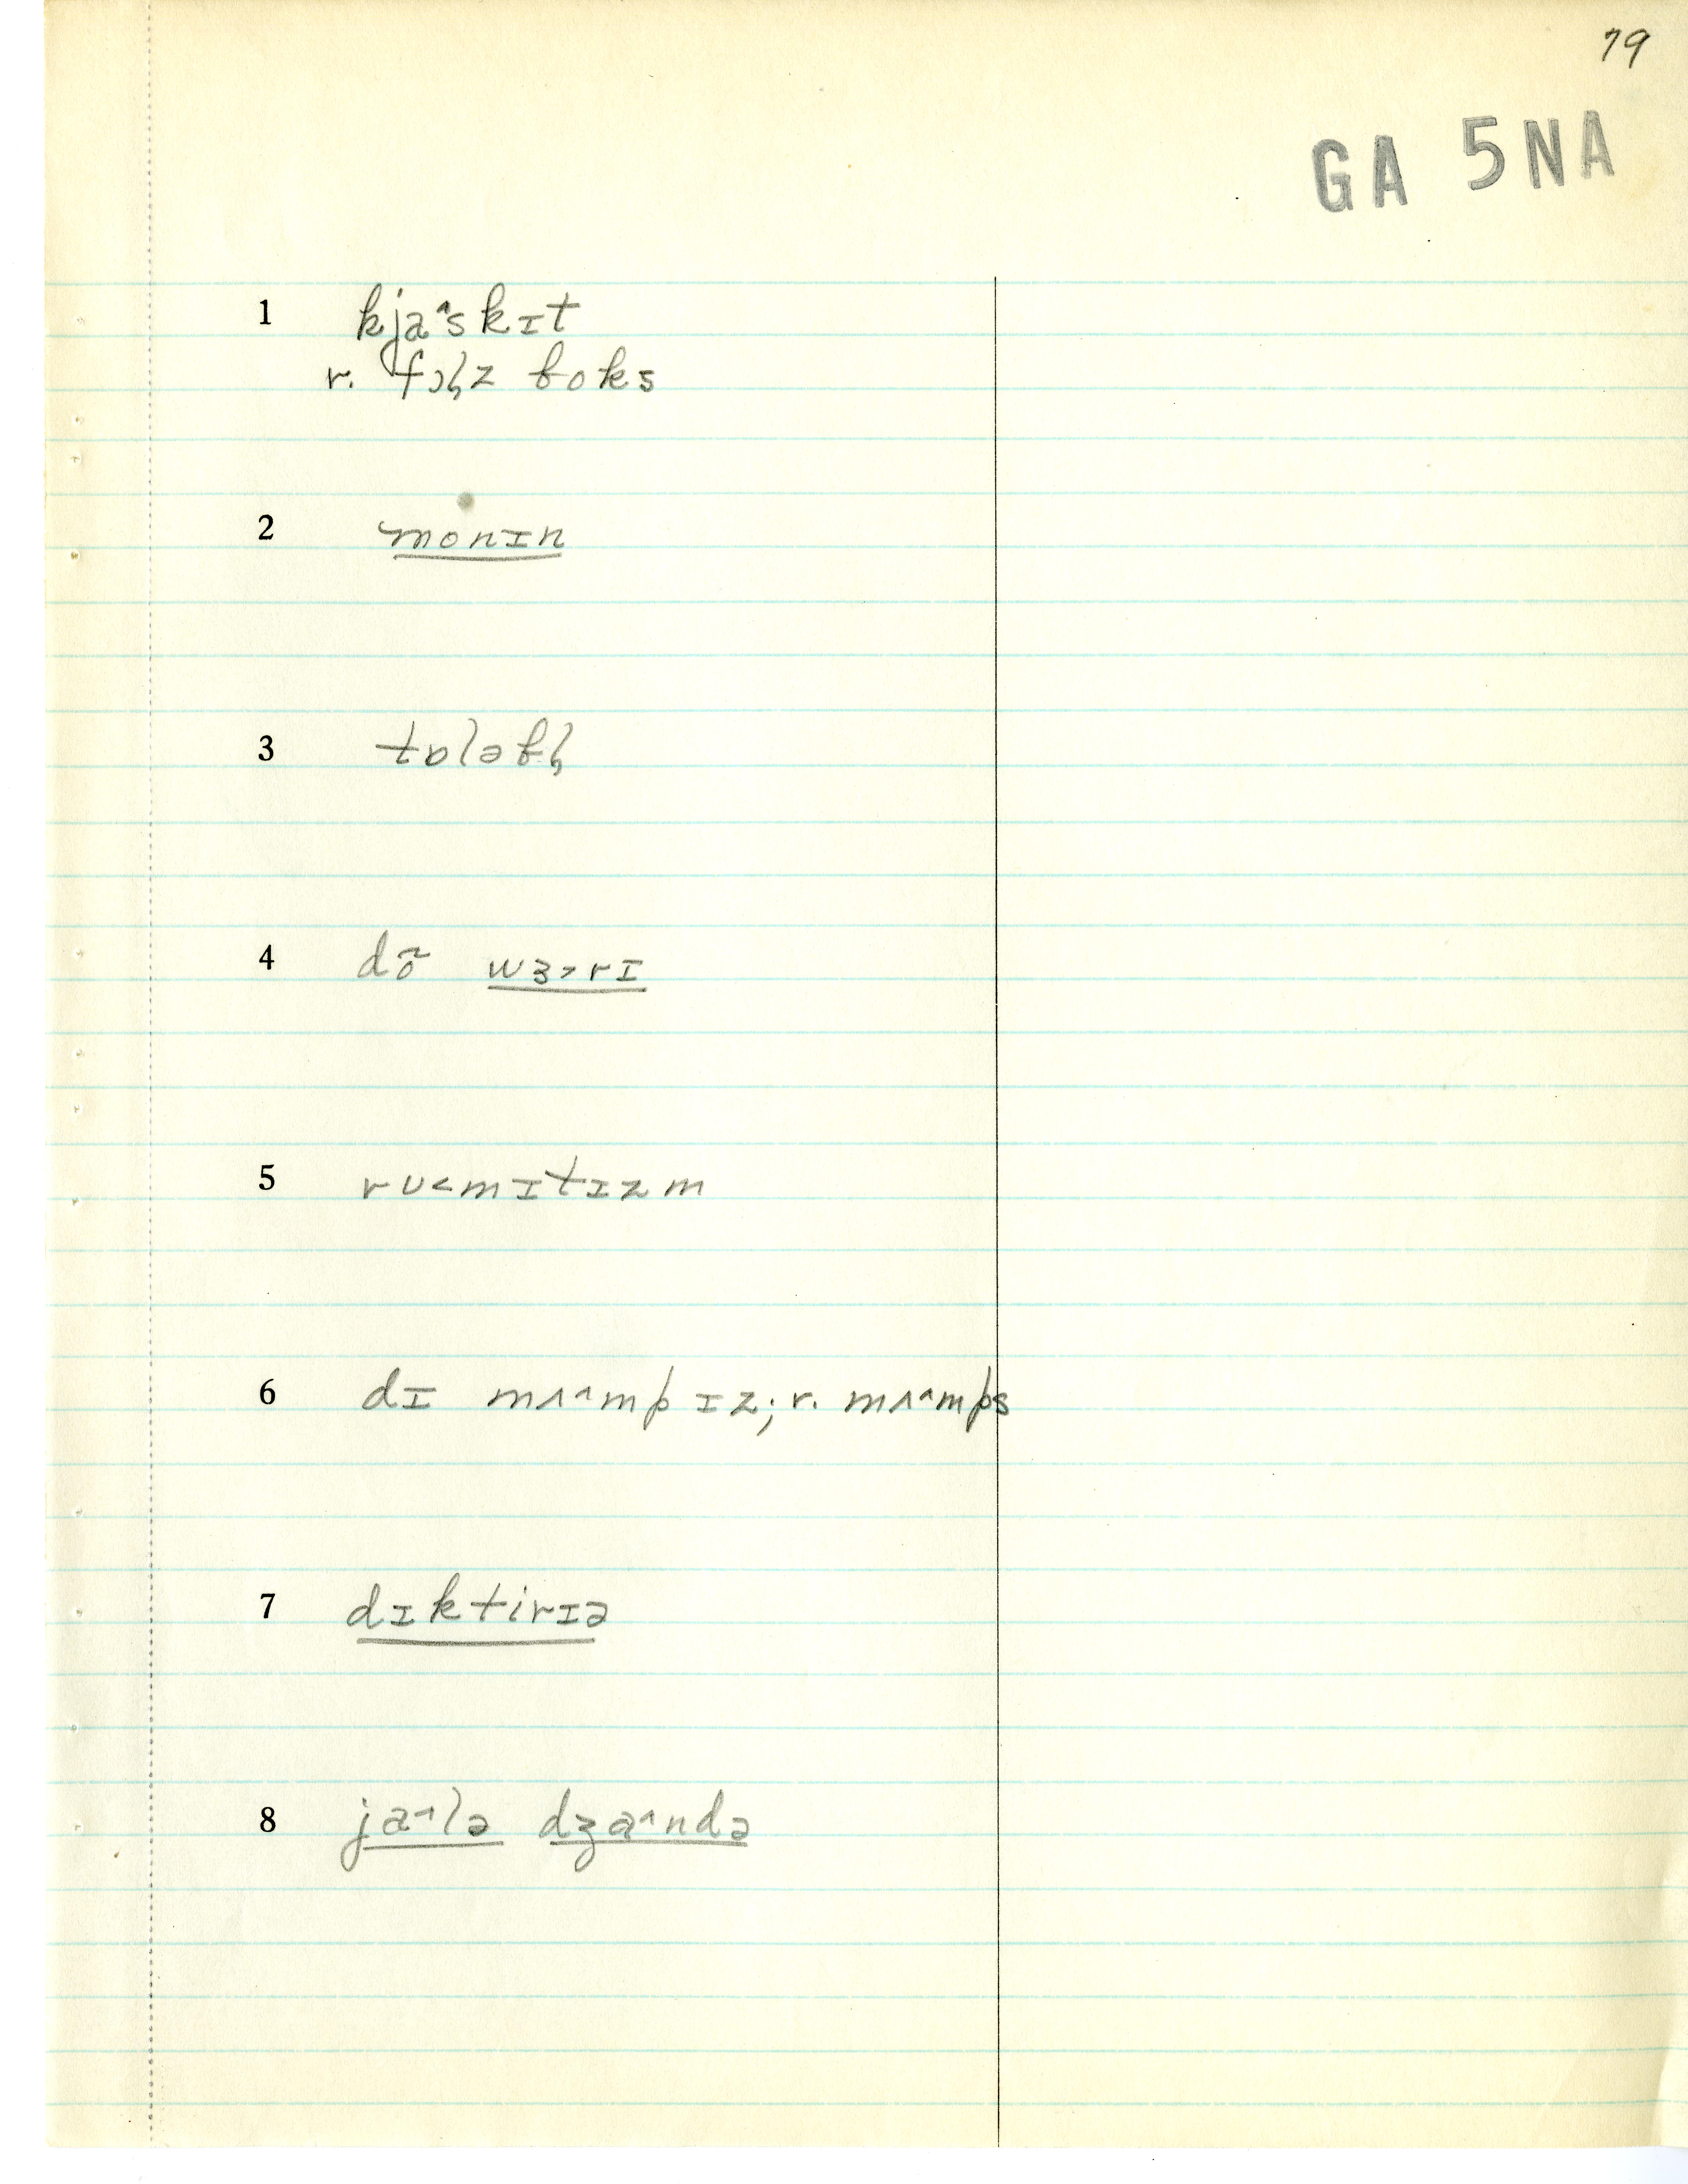 79
GA 5NA
1 kja˄skɪt
r. fɔl̩z boks
2 monɪn
3 tɒləbl̩
4 dõ wɜ˃rɪ
5 rʊ˂mɪtɪzm
6 dɪ mʌ˄mpɪz; r. mʌ˄mps
7 dɪktirɪə
8 ja˄lə dʒa˄ndə